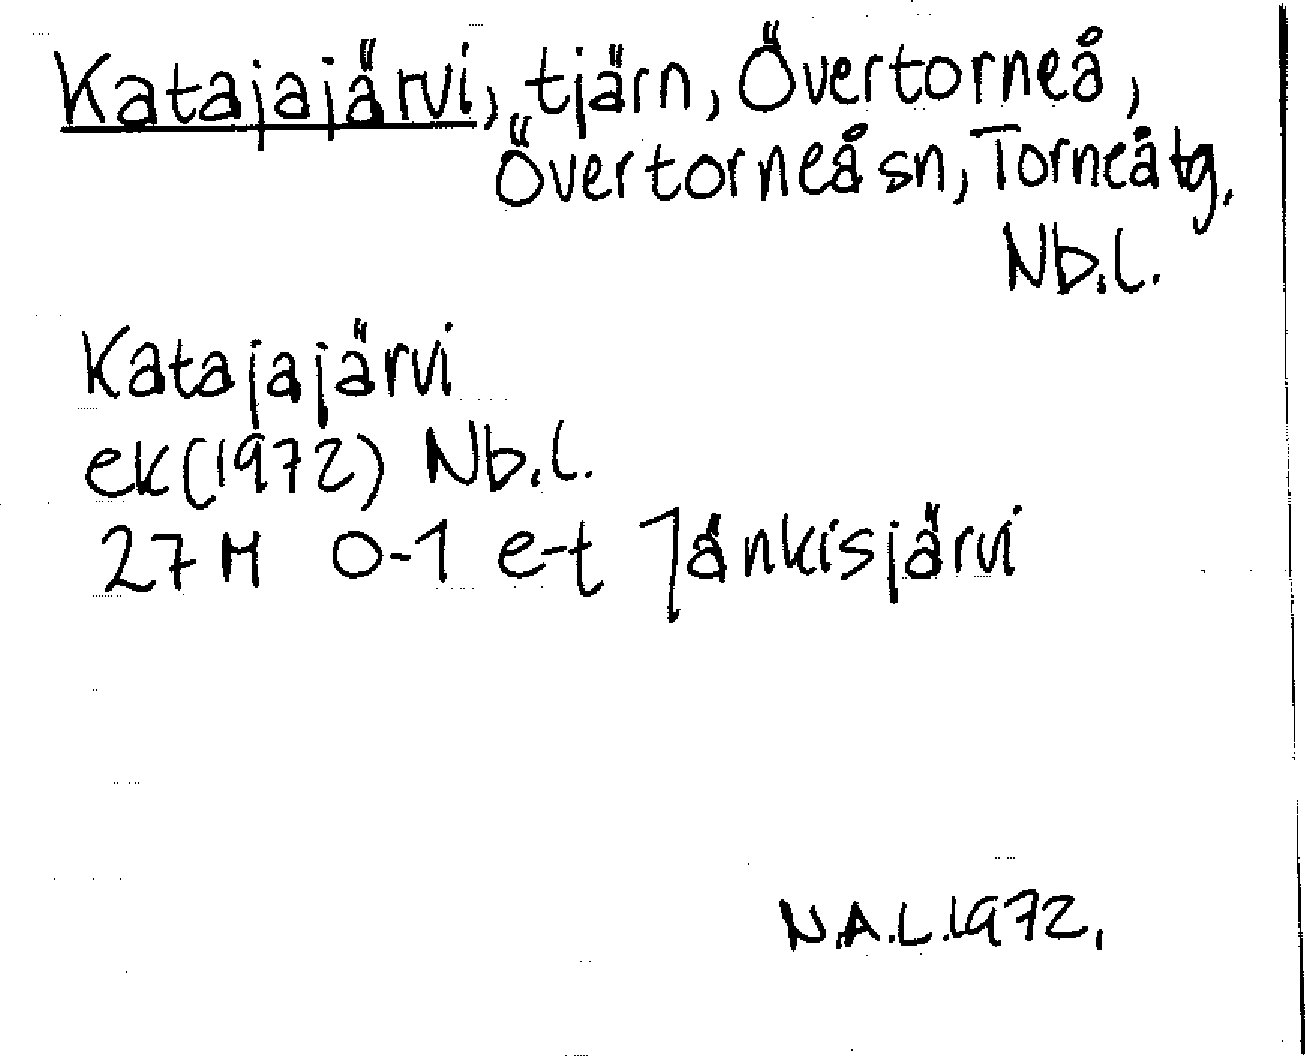 Katajajärvi, tjärn, Övertorneå,
Övertorneå sn, Torneå tg.
Nb.l.
Katajajärvi
ek(1972) Nb.l.
27 M 0-1 e-t Jänkisjärvi
N.A.L.1972.